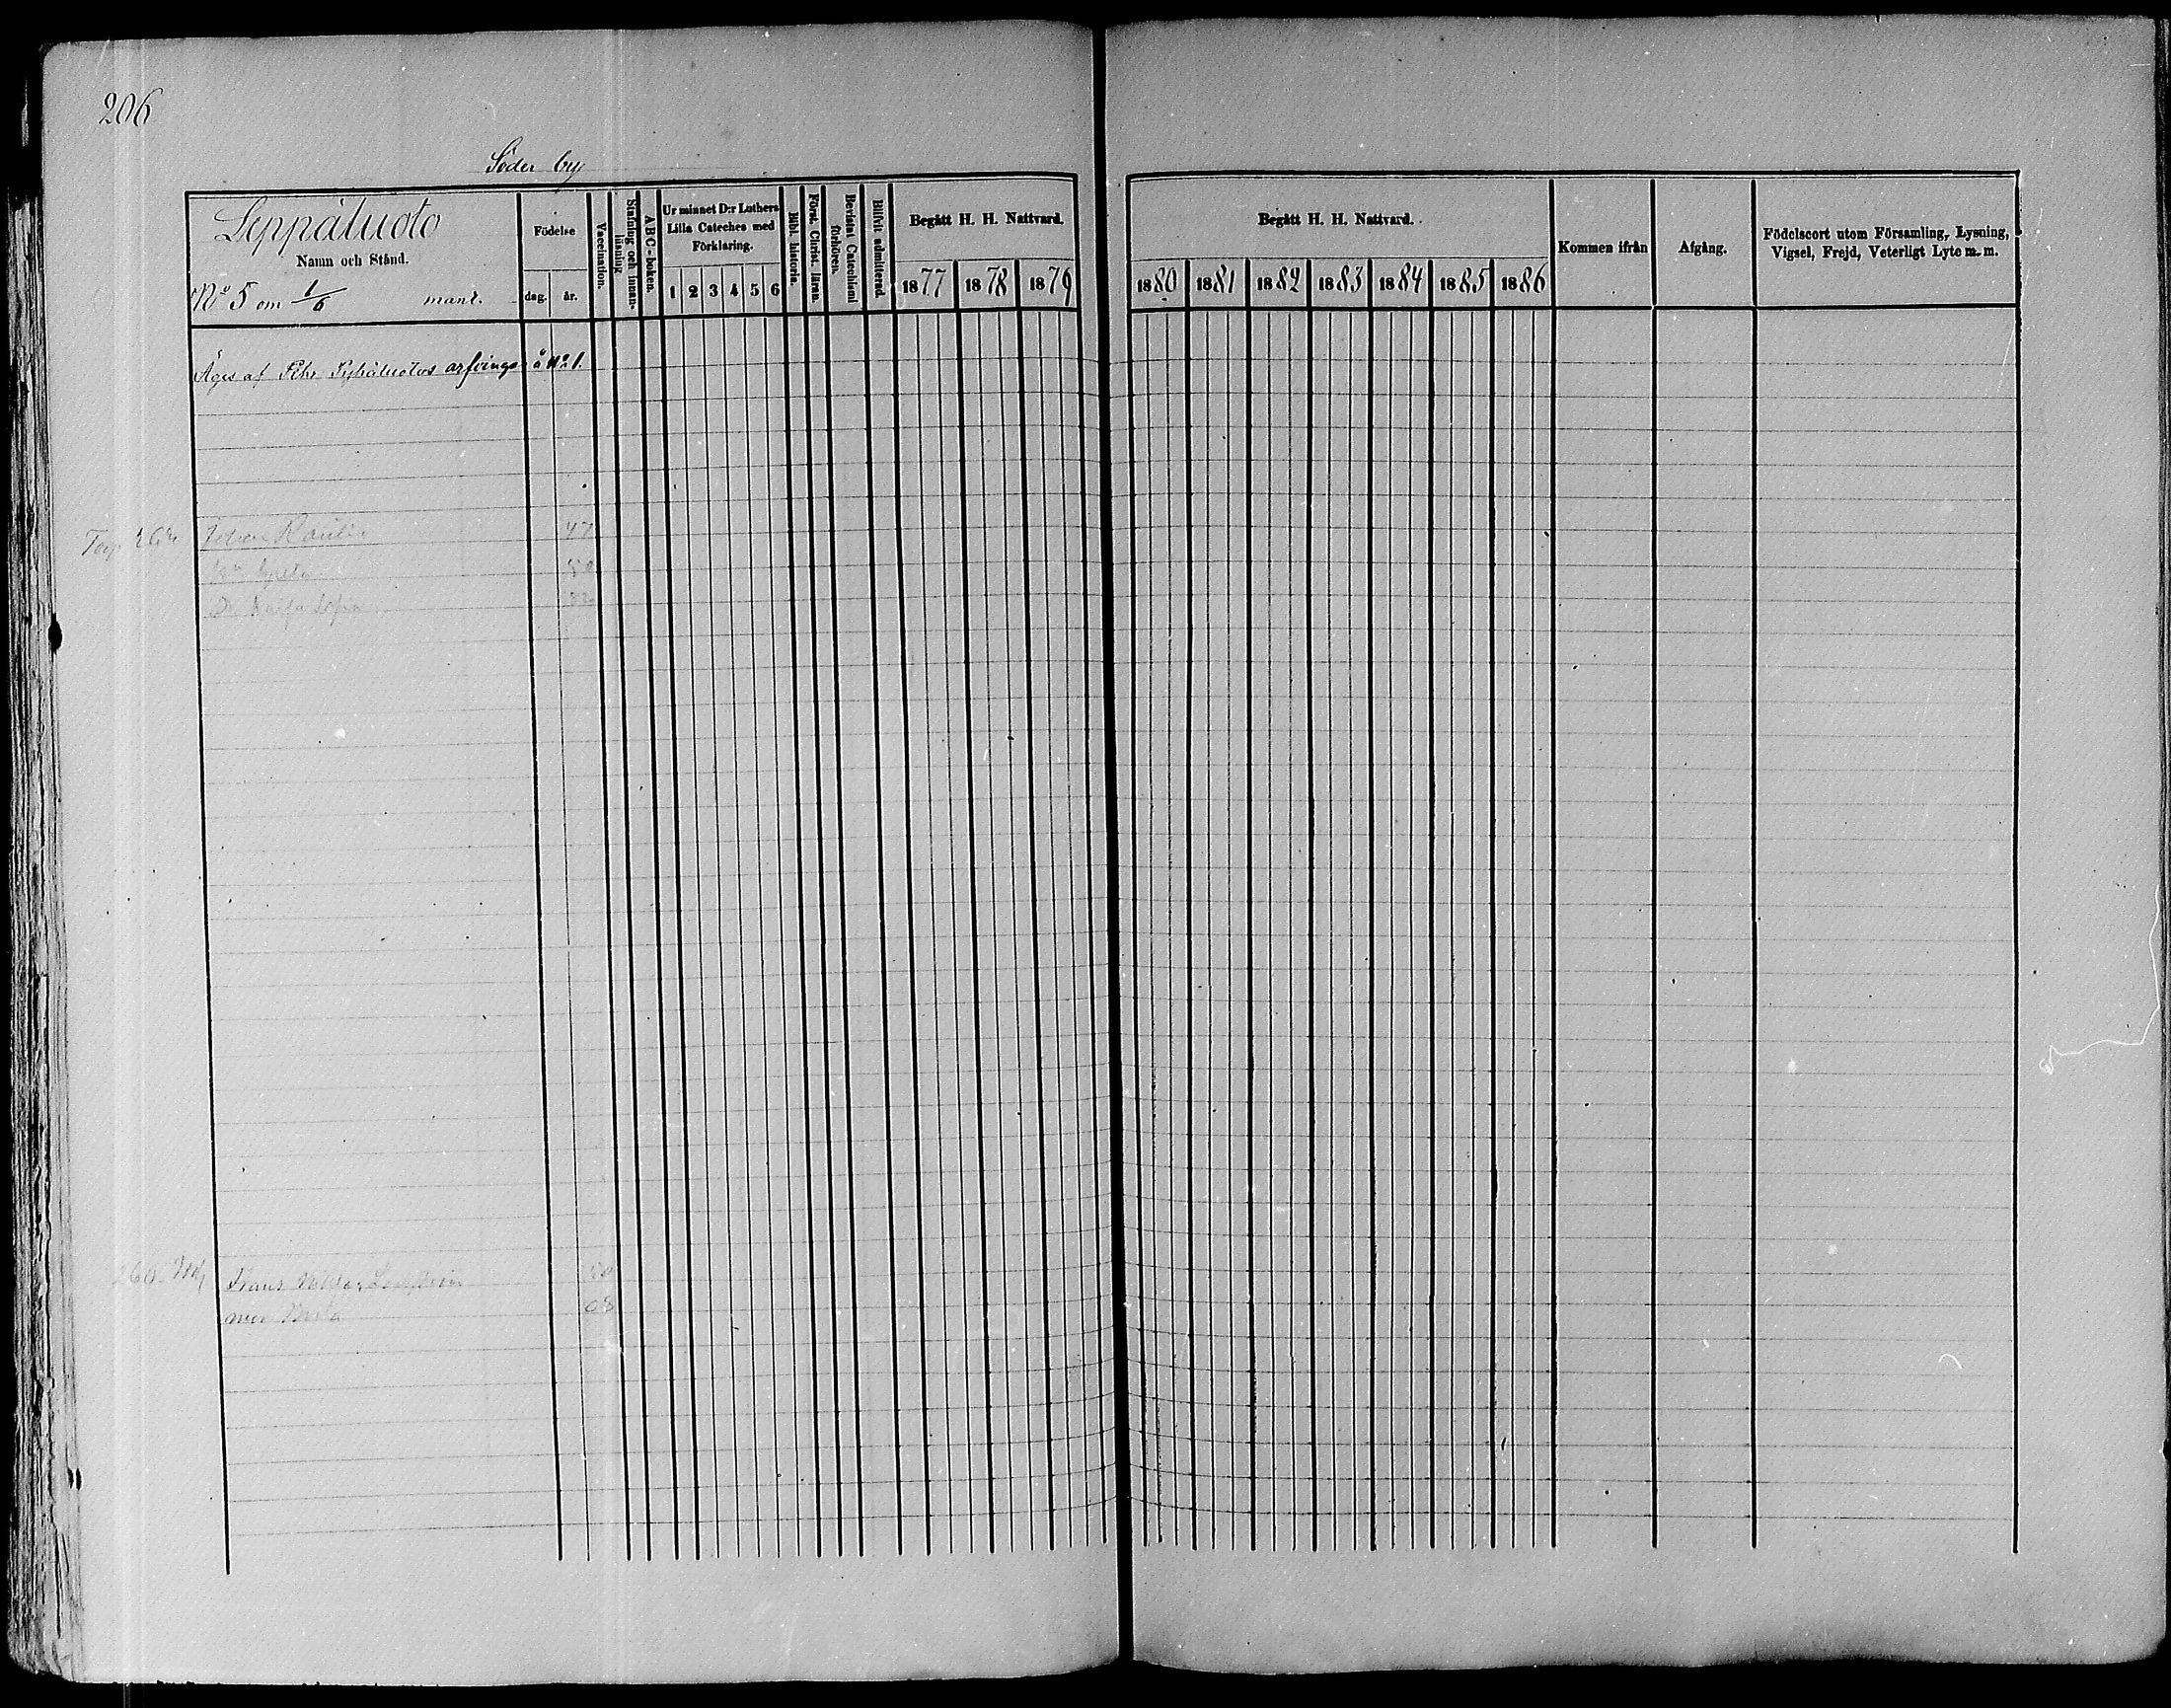 206
Söder by
Leppäluoto
Namn och Stånd.
No 5 om 1/6 mant.
Födelse
dag. år.
Vaccination.
Stafning och innanläsning
ABC-boken.
Ur minnet D:r Luthers Lilla Cateches med Förklaring.
1 2 3 4 5 6
Bibl. historia.
Först. Christ. läran.
Bevistat Catechismi förhören.
Blifvit admitterad.
Begått H. H. Nattvard.
1877 1878 1879
Begått H. H. Nattvard.
1880 1881 1882 1883 1884 1885 1886
Kommen ifrån
Afgång.
Födelseort utom Församling, Lysning, Vigsel, Frejd, Veterligt Lyte m. m.
Äges af Pehr Pyhäluotos arfvingar å No 1.
Johan 47
Greta
Sofia
Frans
08